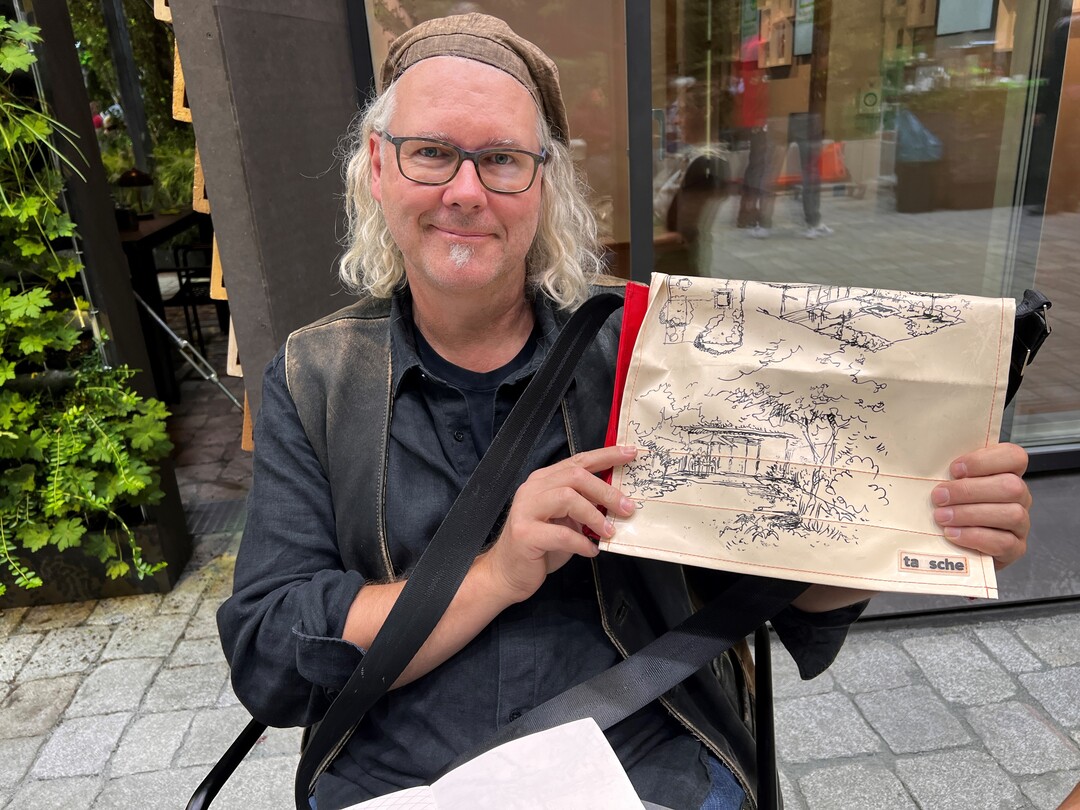 ta sche